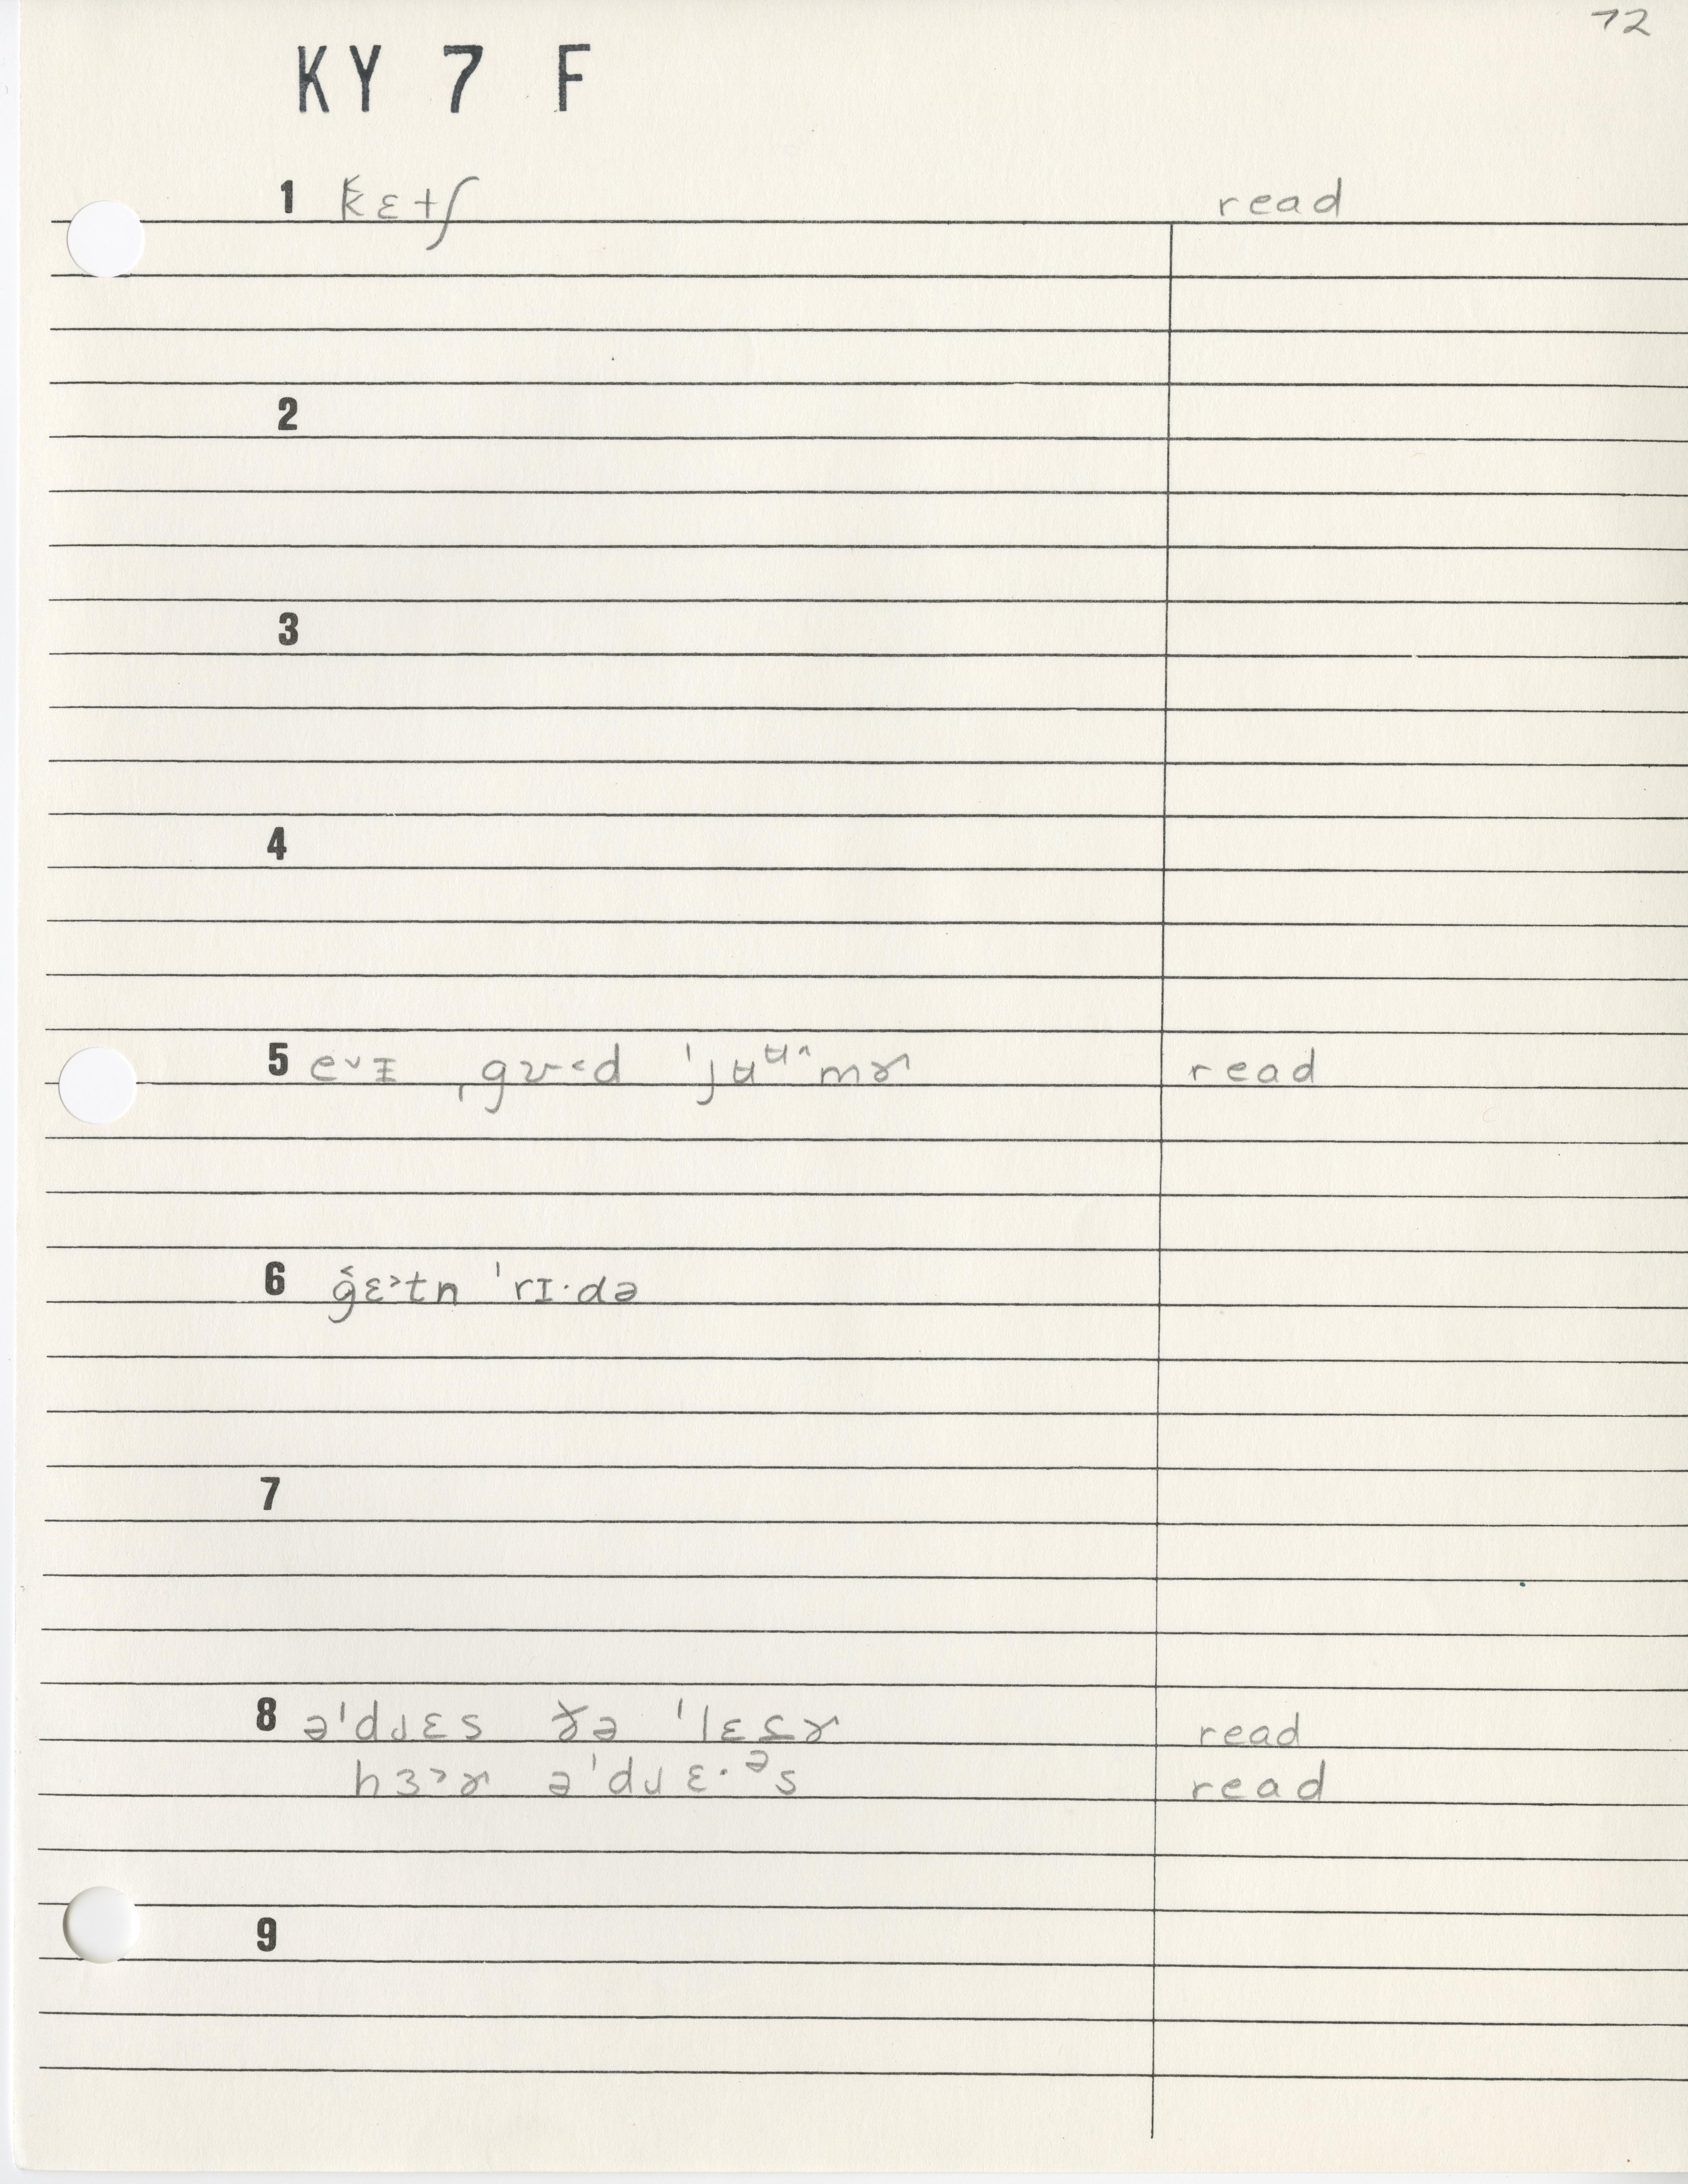 72
KY 7 F
1 k̬ɛtʃ read
2
3
4
5 e˅ɪ ˌgʊ˂d ˈjʉᵾ˄mɚ read
6 g̬ɛ˃tn ˈrɪ·də
7
8 əˈdɹɛs ðə ˈlɛt̬ɚ read
hɜ˃ɚ əˈdɹɛ·ᵊs read
9